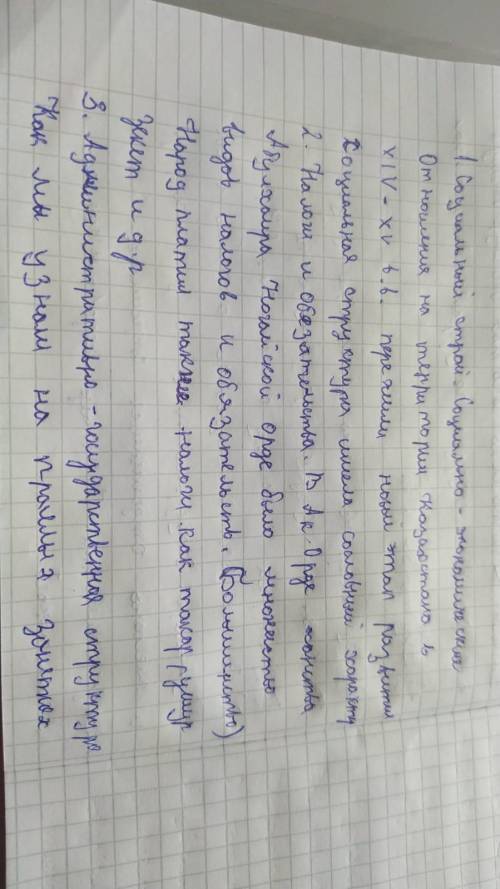 1. Социальный строй. Социально - экономические
отношения на территории Казахстана в
XIV - XV в.в. пережили новый этап развития
Социальная структура имела сословный характер
2. Налоги и обязательства. В Ак Орде ханства
Абулхаира Ногайской орде было множество
видов налогов и обязательств. (Большинство)
Народ платил такие налоги как тагар, ушур
зекет и д.р
3. Административно - государственная структура
Как мы узнали на прошлых занятиях